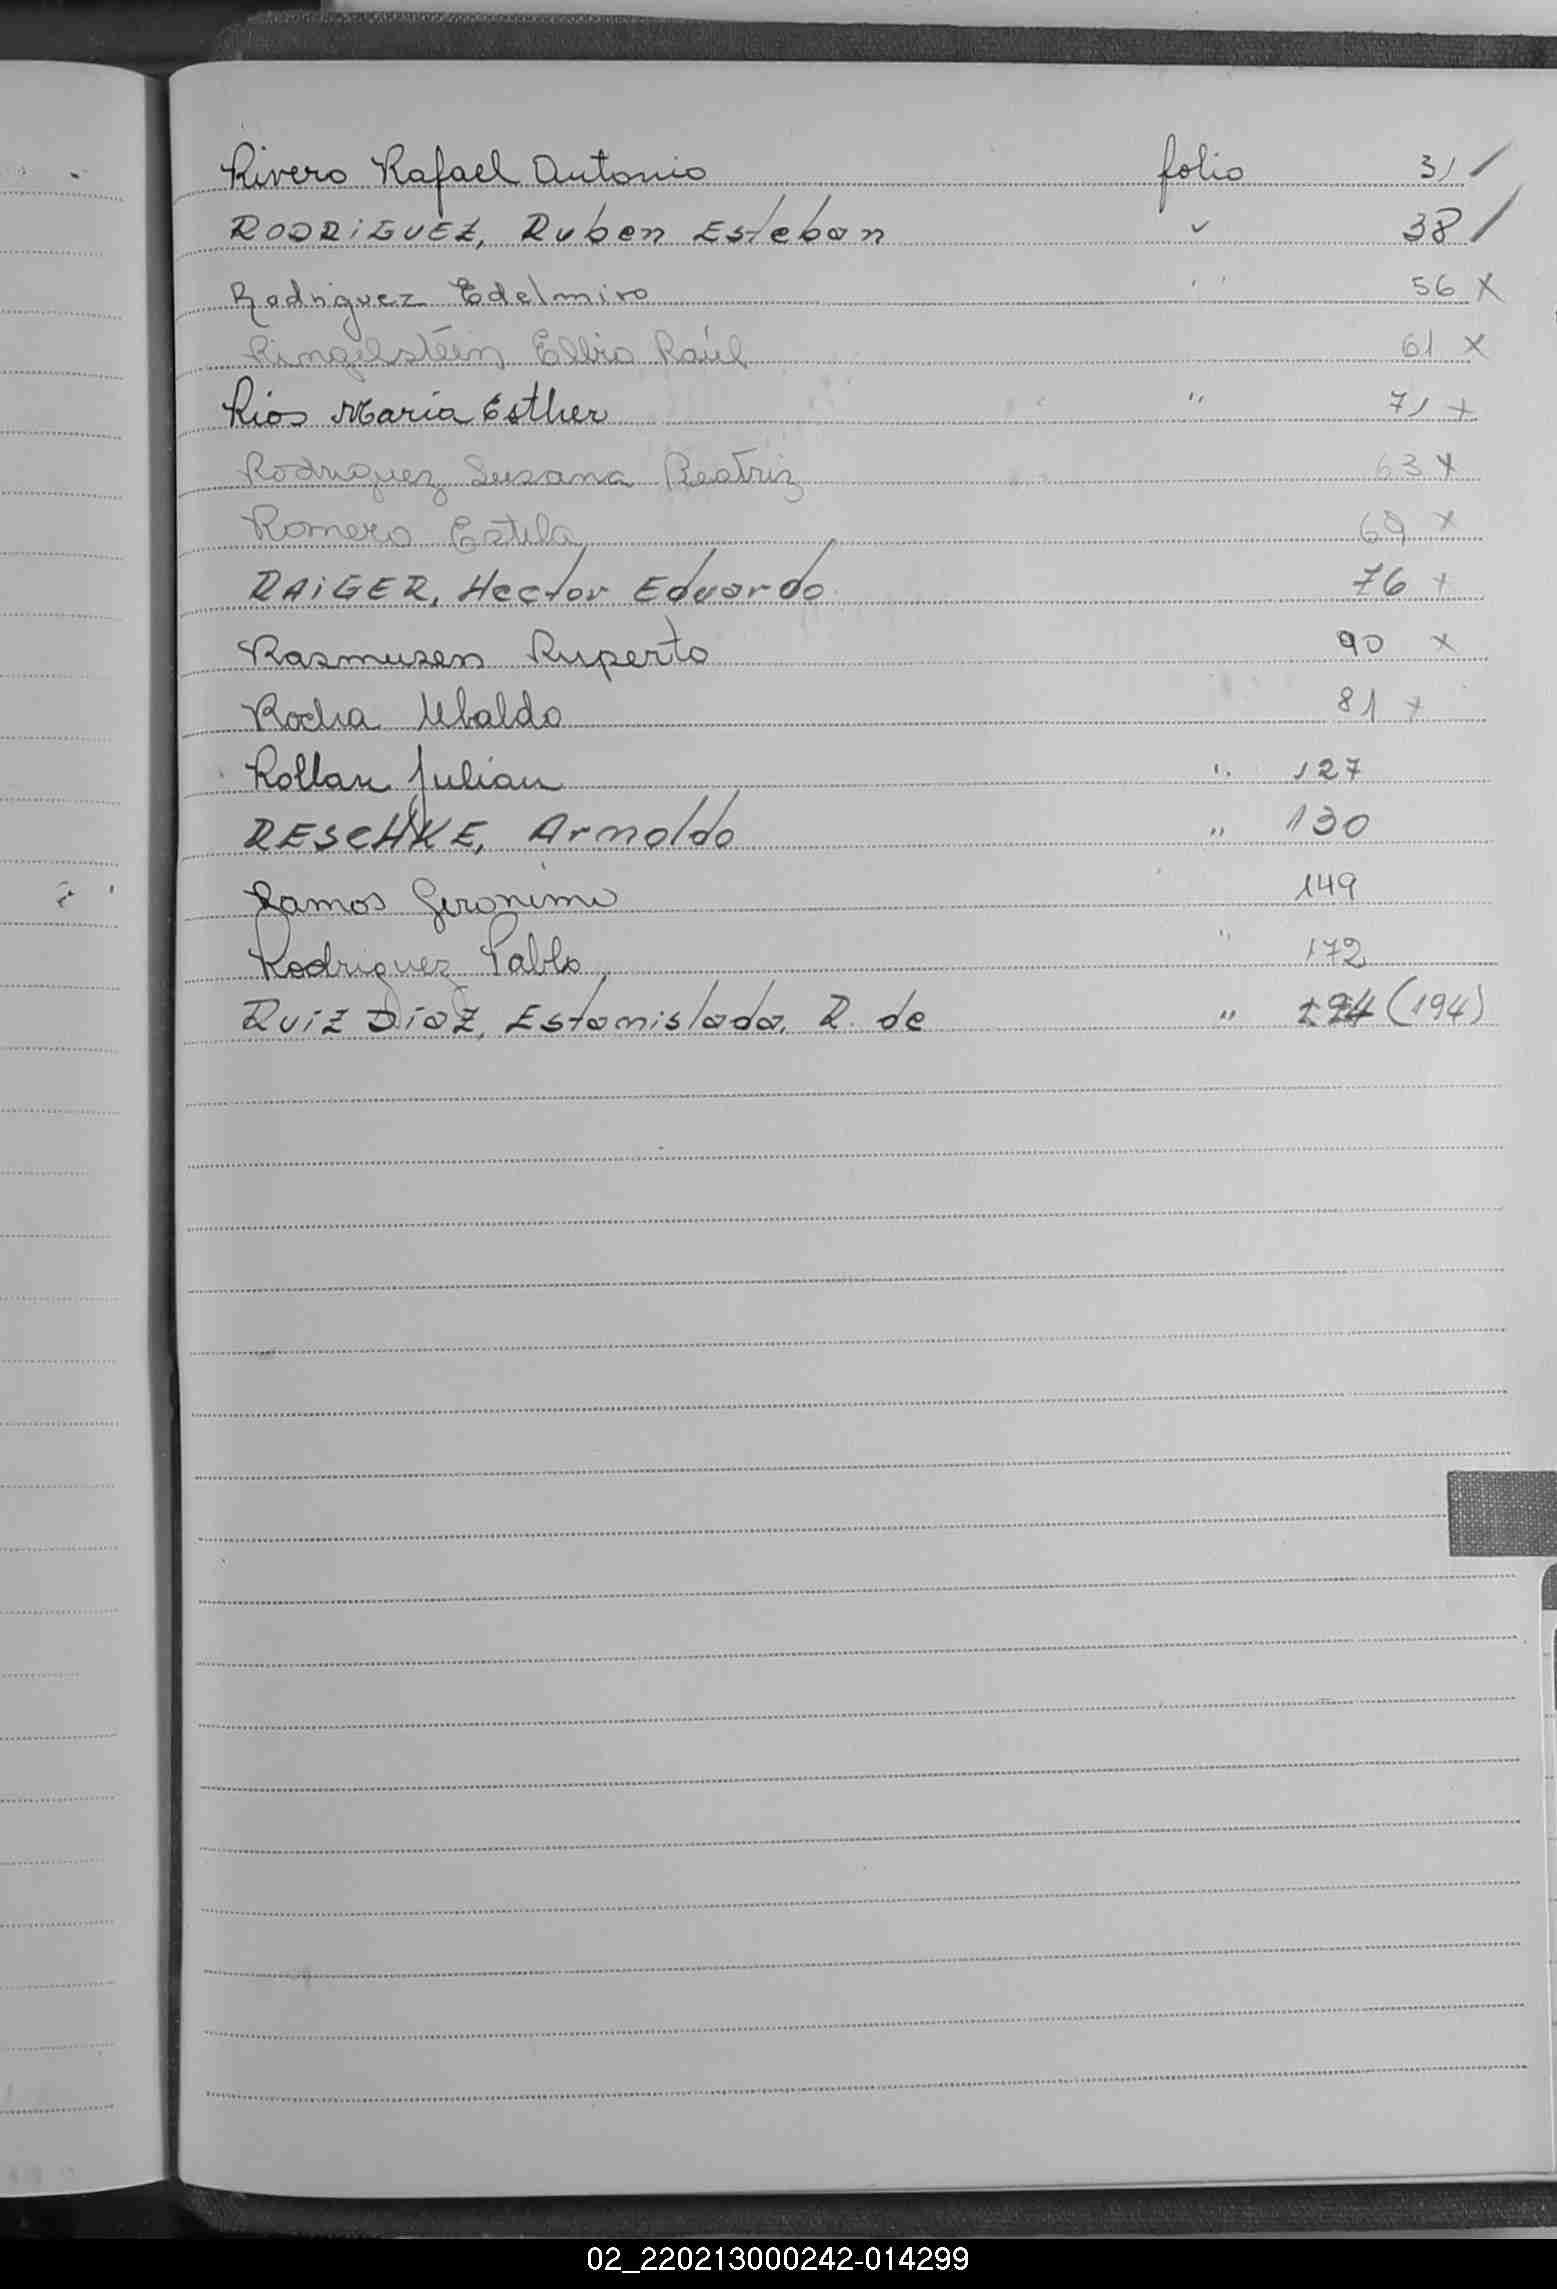 Rivero Rafael Antonio folio 31 /
RODRiGUEZ, Ruben Esteban " 38 /
Rodriguez Edelmiro " 56 x
Ringelstein Elbio Raúl 61 x
Rios Maria Esther " 71 x
Rodriguez Susana Beatriz 63 x
Romero Estela 69 x
RAiGER, Hector Eduardo 76 x
Rasmusen Ruperto 90 x
Rocha Ubaldo 81 x
Rollan Julian " 127
RESCHKE, Arnoldo " 130
Ramos Geronimo 149
Rodriguez Pablo " 172
RUiZ DíaZ, Estanislada R. de " 194 (194)
02_220213000242-014299